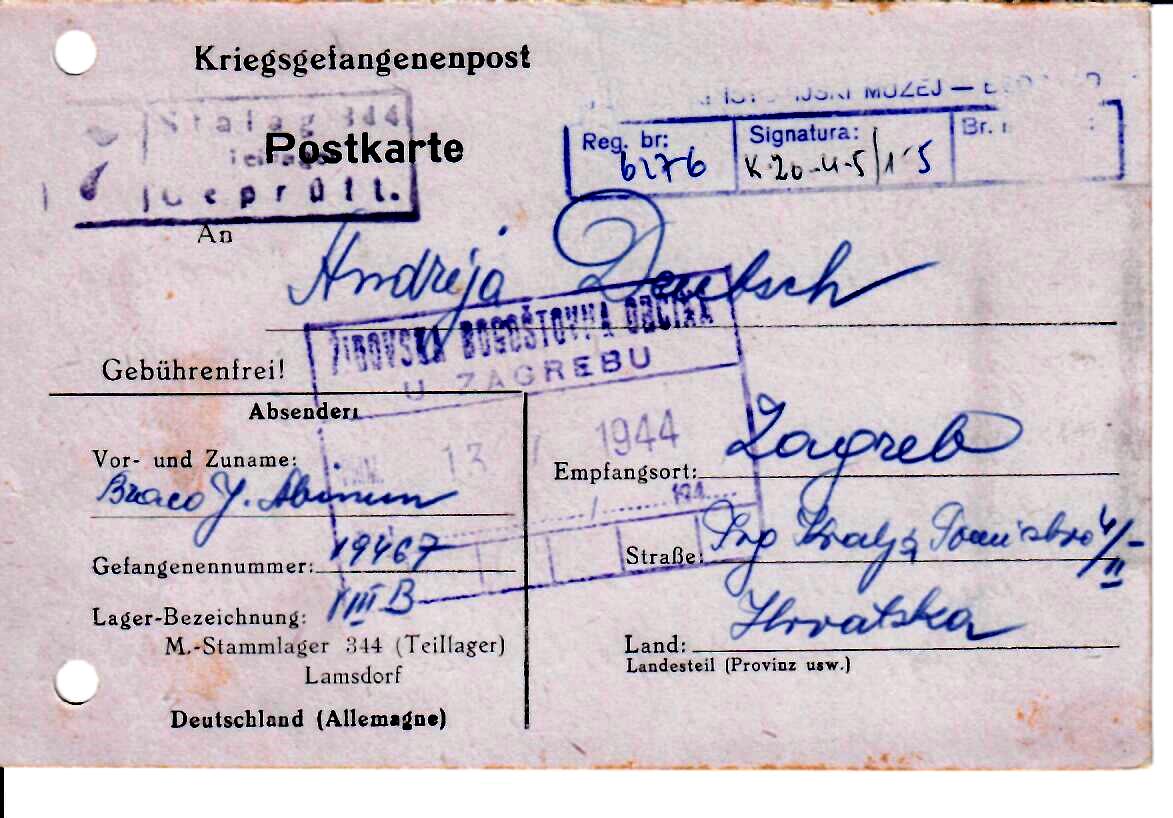 Kriegsgefangenenpost
Stalag 344
Postkarte
Geprüft.
MUZEJ —
Reg. br: 6276
Signatura: K-20-4-5/1-5
Br.
An
Andrija Deutsch
ŽIDOVSKA BOGOŠTOVNA OBĆINA
U ZAGREBU
13 1944
194
Gebührenfrei!
Absender:
Vor- und Zuname:
Braco J.
Gefangenennummer: 19467
Lager-Bezeichnung: VIII B
M.-Stammlager 344 (Teillager)
Lamsdorf
Deutschland (Allemagne)
Empfangsort: Zagreb
Straße: Trg Kralja
Land: Hrvatska
Landesteil (Provinz usw.)